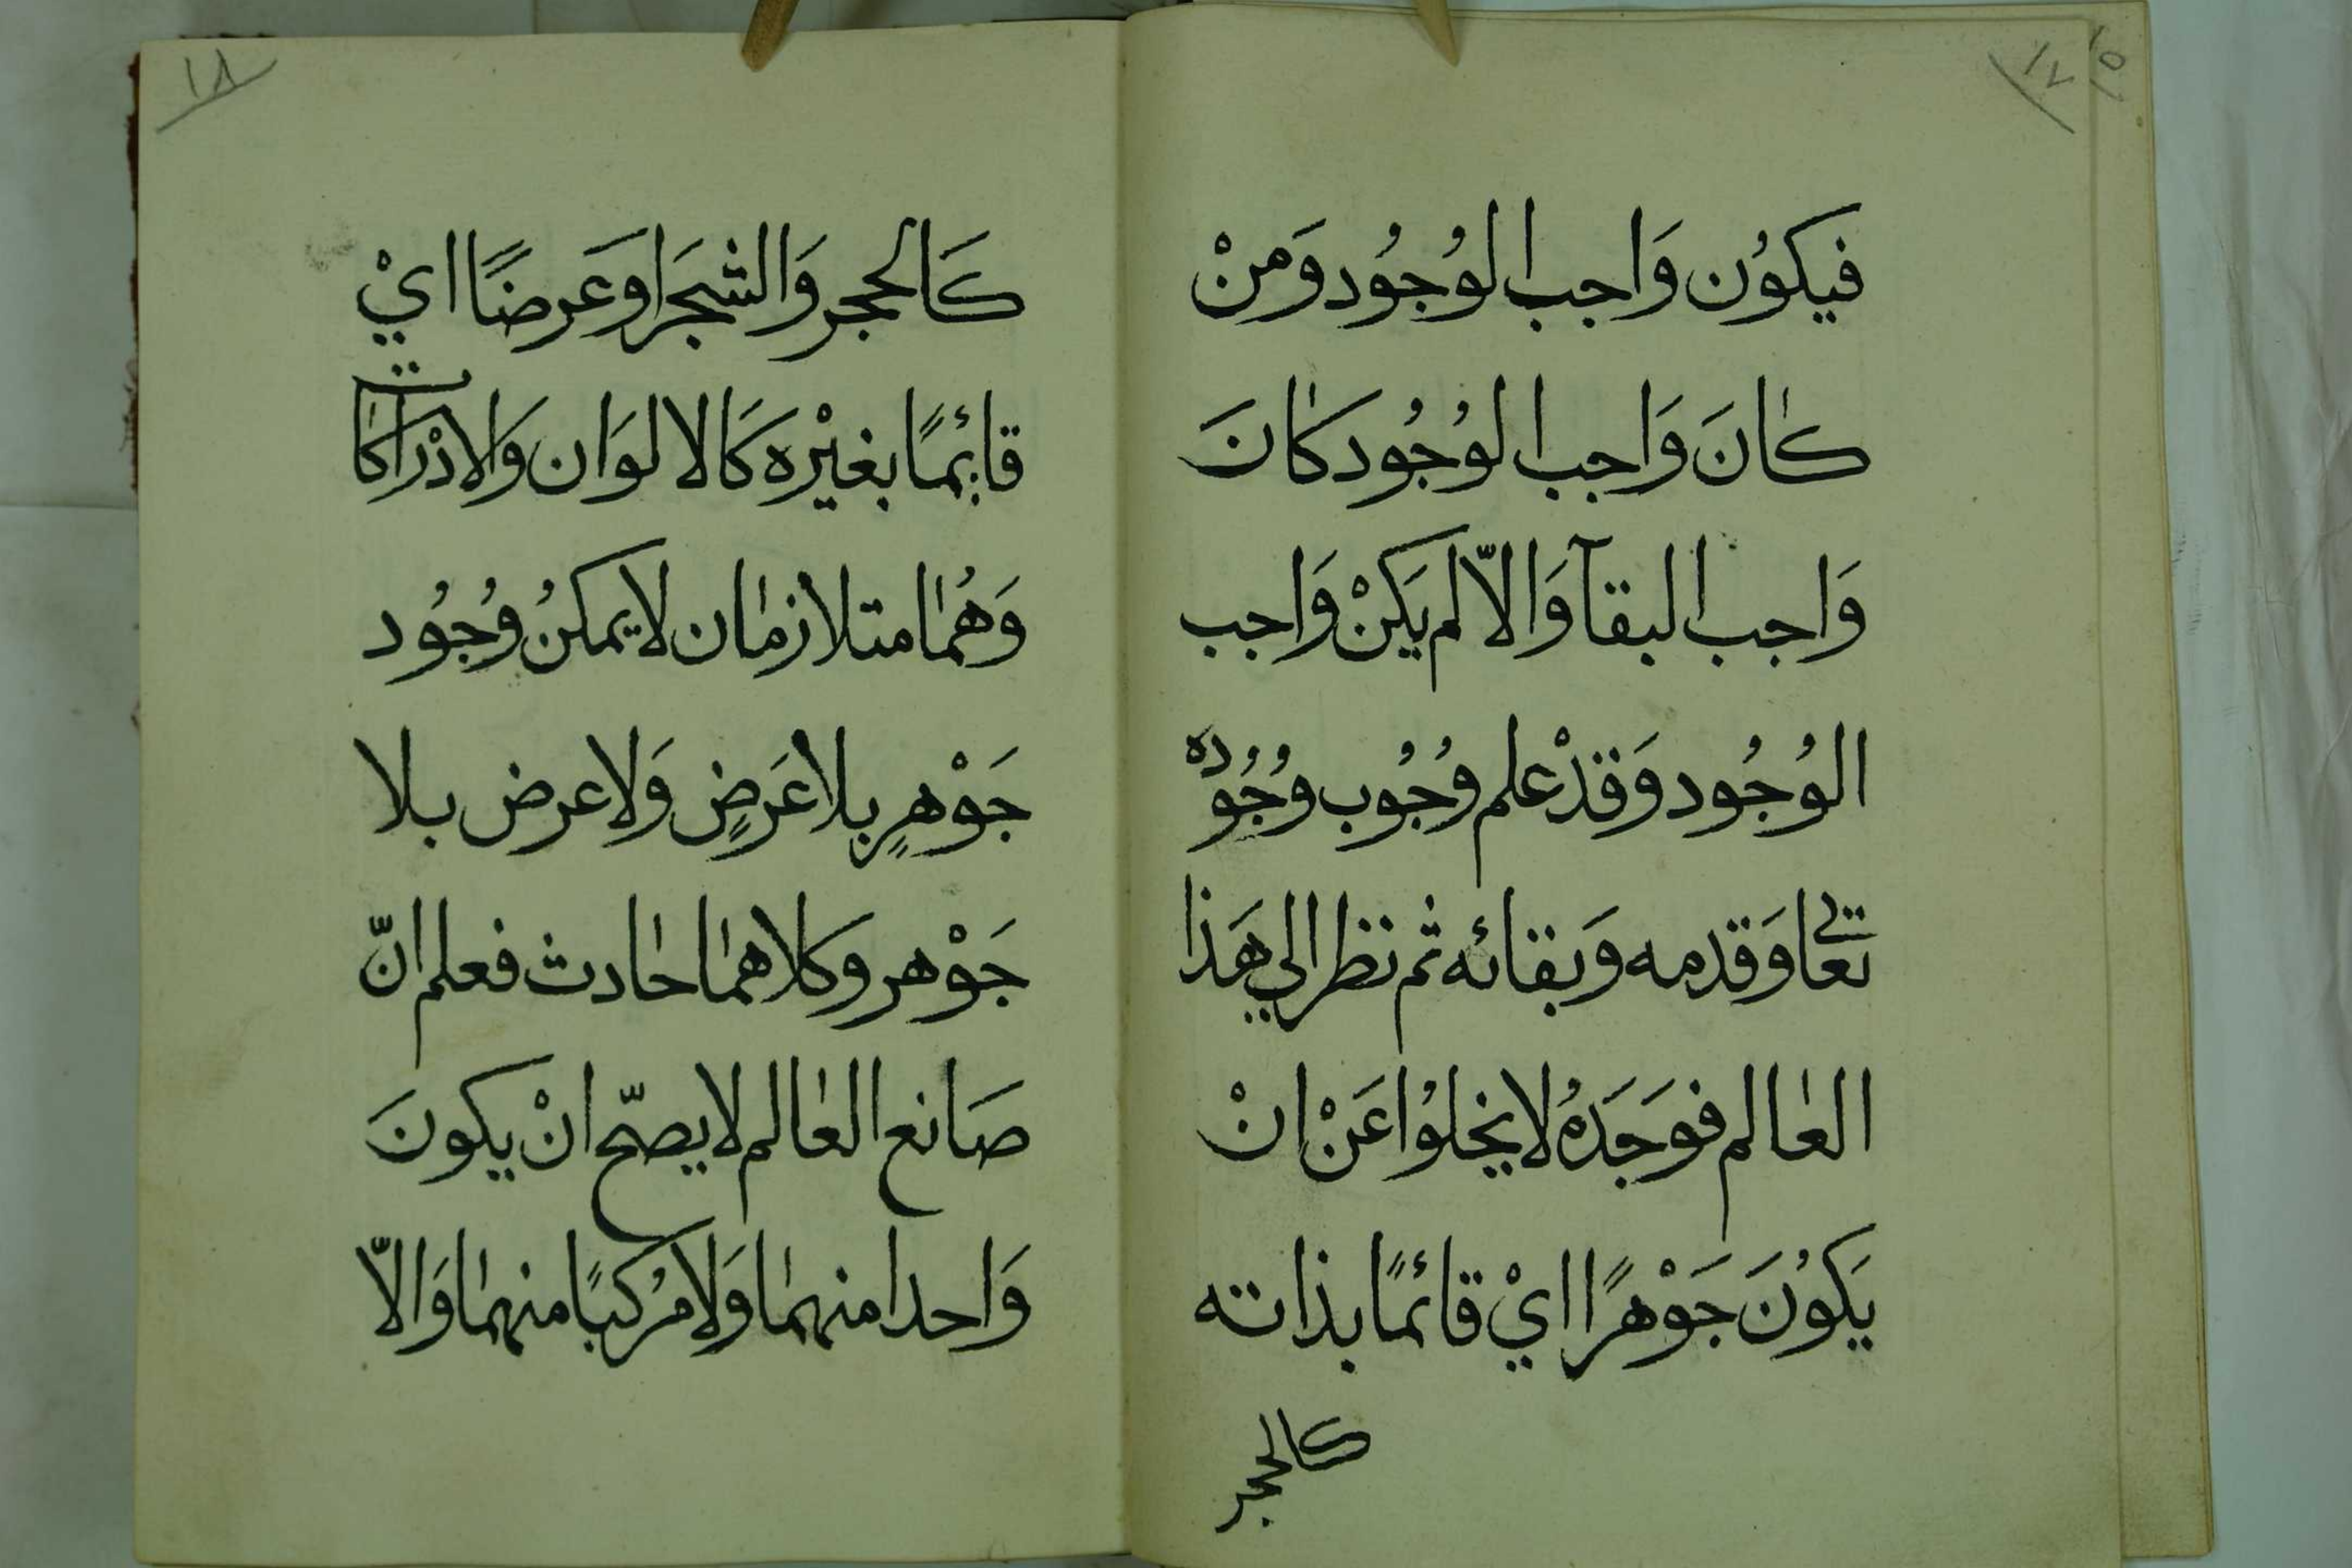 ١٧
١٥
فيكوُن وَاجب الوُجُود وَمنْ
كانَ وَاجب الوُجُود كانَ
وَاجب البقآ وَالاّ لم يَكنْ وَاجب
الوُجُود وَقدْ علم وُجُوب وُجُوده
تعالى وَقدمه وَبقائه ثم نظر الي هَذا
العالم فوَجَدَهُ لا يخلوُا عَنْ انْ
يَكوُنَ جَوْهرًا ايْ قائمًا بذاته
كالحجر
١٨
كَالحجر وَالشجَر اوعَرضًا ايْ
قائمًا بغيْره كَالالوَان وَالادْرَاكات
وَهُما متلازمان لا يمكنُ وُجُود
جَوْهرٍ بلا عَرَضٍ وَلا عرض بلا
جَوْهر وكلاهما حادث فعلم انّ
صَانع العالم لا يصحّ انْ يكونَ
وَاحدا منهما وَلا مرُكبًا منهما وَالاّ